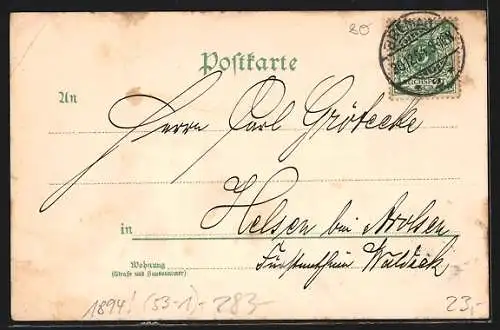 80
Postkarte
An
Herrn Carl Grötecke
Helsen bei Arolsen
in
Fürstenthum Waldeck
Wohnung
(Straße und Hausnummer)
1894! (53-1)- 283-
23,-